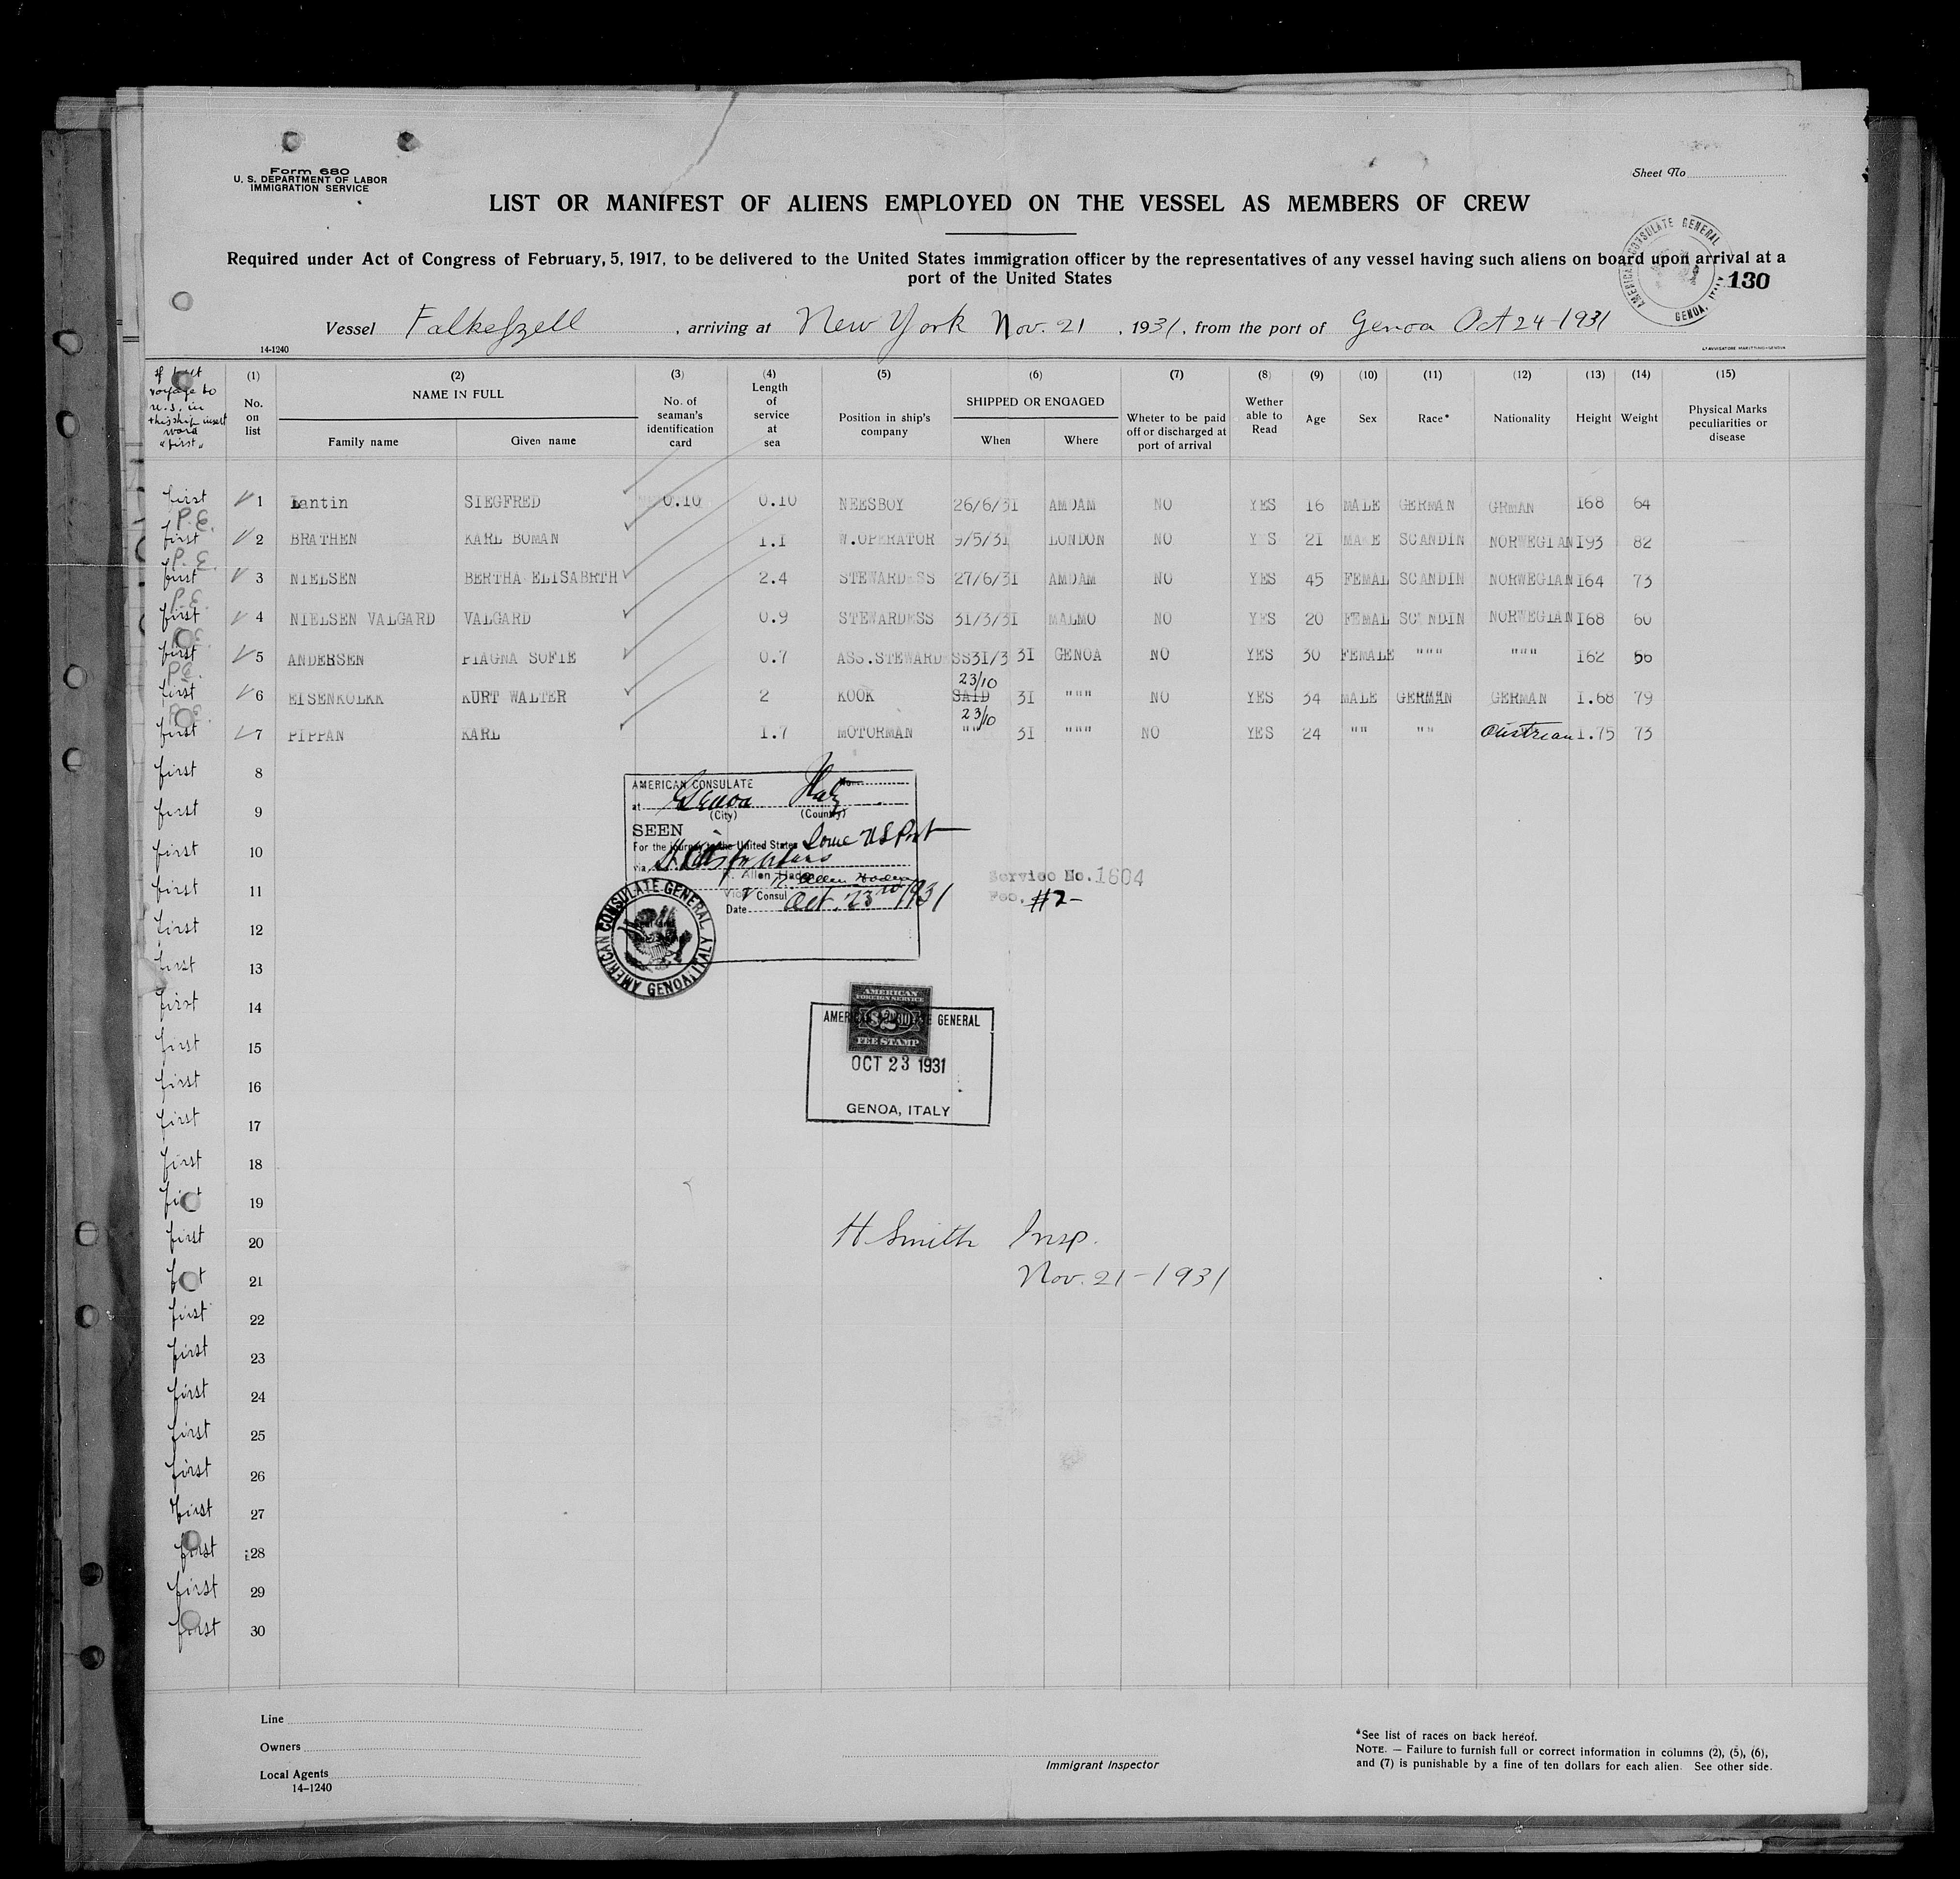 Form 680
U. S. DEPARTMENT OF LABOR
IMMIGRATION SERVICE
Sheet No
LIST OR MANIFEST OF ALIENS EMPLOYED ON THE VESSEL AS MEMBERS OF CREW
Required under Act of Congress of February, 5, 1917, to be delivered to the United States immigration officer by the representatives of any vessel having such aliens on board upon arrival at a
port of the United States
AMERICAN CONSULATE GENERAL GENOA, ITALY
130
Vessel , arriving at New York Nov. 21 , 1931, from the port of Genoa Oct 24-1931
14-1240
voyage to u.s. in this ship insert word "first"
(1) No. on list
(2) NAME IN FULL
Family name Given name
(3) No. of seaman's identification card
(4) Length of service at sea
(5) Position in ship's company
(6) SHIPPED OR ENGAGED
When Where
(7) Wheter to be paid off or discharged at port of arrival
(8) Wether able to Read
(9) Age
(10) Sex
(11) Race*
(12) Nationality
(13) Height
(14) Weight
(15) Physical Marks peculiarities or disease
first 1 Lantin SIEGFRED 0.10 0.10 NEESBOY 26/6/31 AMDAM NO YES 16 MALE GERMAN GRMAN 168 64
P.E.
first 2 BRATHEN KARL BOMAN 1.1 W.OPERATOR 9/5/31 LONDON NO Y S 21 MA E SCANDIN NORWEGIAN 193 82
P.E.
first 3 NIELSEN BERTHA ELISABRTH 2.4 STEWARDESS 27/6/31 AMDAM NO YES 45 FEMAL SCANDIN NORWEGIAN 164 73
P.E.
first 4 NIELSEN VALGARD VALGARD 0.9 STEWARDESS 31/3/31 MALMO NO YES 20 FEMAL SC NDIN NORWEGIAN 168 60
first 5 ANDERSEN PIAGNA SOFIE 0.7 ASS.STEWARDESS 31/3 31 GENOA NO YES 30 FEMALE """ """ 162 56
P.E.
23/10
first 6 EISENKOLKK KURT WALTER 2 KOOK SAID 31 """ NO YES 34 MALE GERMAN GERMAN 1.68 79
23/10
first 7 PIPPAN KARL 1.7 MOTORMAN "" 31 """ NO YES 24 "" "" Oustrean 1.75 73
first 8
first 9
first 10
first 11
first 12
first 13
first 14
first 15
first 16
first 17
first 18
first 19
first 20
first 21
first 22
first 23
first 24
first 25
first 26
first 27
first 28
first 29
first 30
AMERICAN CONSULATE
at Genoa Italy
(City) (Country)
SEEN
For the journey to the United States Some US Port
via
Allen Haden
Vice Consul
Date Oct. 23rd 1931
AMERICAN CONSULATE GENERAL GENOA, ITALY
Service No. 1604
Fee. #2-
AMERICAN FOREIGN SERVICE
$2
FEE STAMP
AMERICAN CONSULATE GENERAL
OCT 23 1931
GENOA, ITALY
H Smith Insp.
Nov. 21-1931
Line
Owners
Local Agents
14-1240
Immigrant Inspector
*See list of races on back hereof.
NOTE. — Failure to furnish full or correct information in columns (2), (5), (6),
and (7) is punishable by a fine of ten dollars for each alien. See other side.